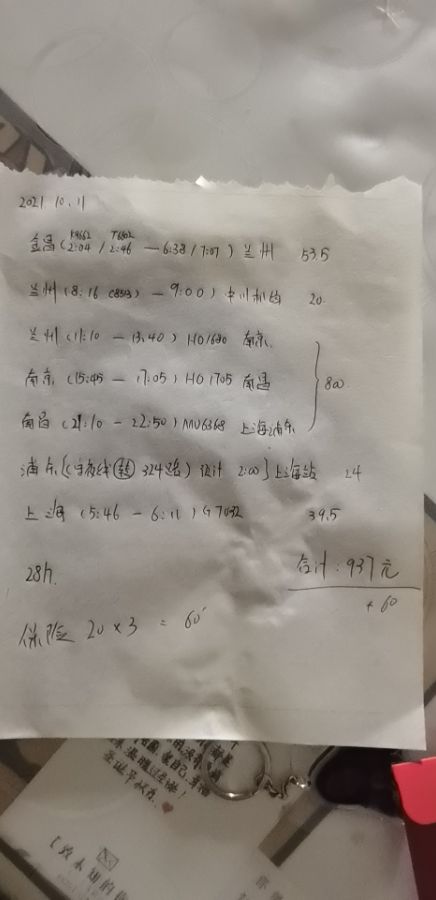 2021 10.11
K9662 T6602
金昌(2:04 / 2:46 — 6:38 / 7:07) 兰州 53.5
兰州(8:16 C8513) — 9:00) 中川机场 20.
兰州(11:10 — 13:40) HO1680 南京.
南京(15:45 — 17:05) HO1705 南昌
800
南昌(21:10 — 22:50) MU6368 上海浦东
浦东[(守夜线(转) 324路) 预计 2:00] 上海站 24
上海(5:46 — 6:11) G7032 39.5
28h.
合计: 937元
+ 60
保险 20 × 3 = 60
圣诞节快乐.
[致未知的